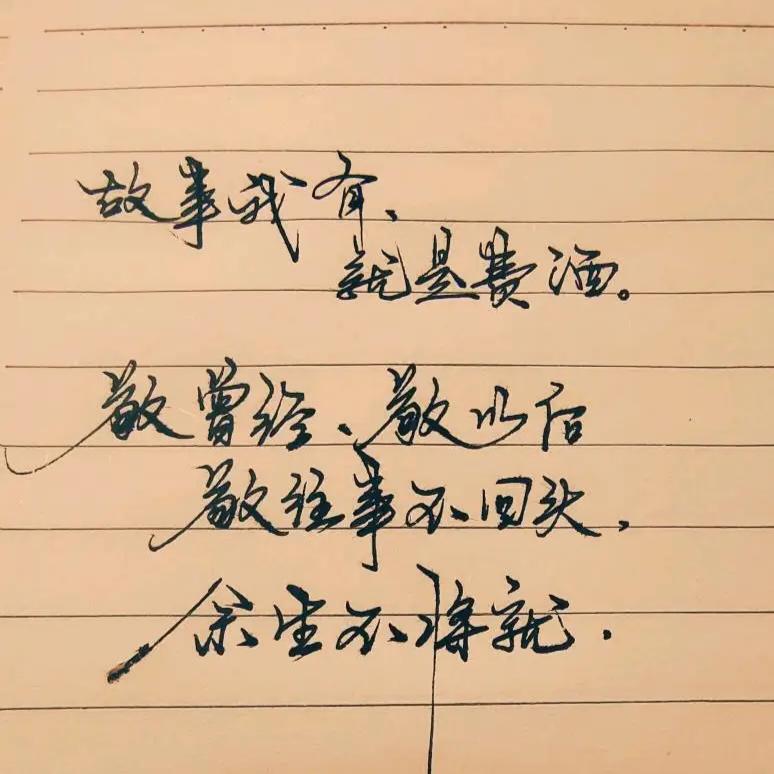 故事我有、
就是费酒。
敬曾经、敬以后
敬往事不回头，
余生不将就.